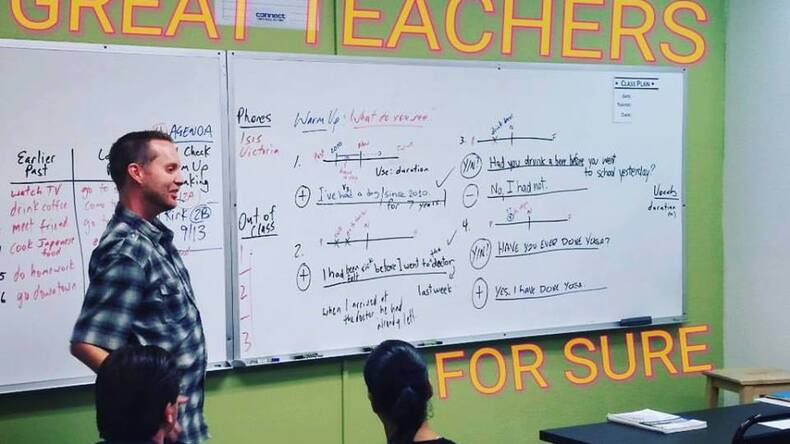 GREAT TEACHERS
connect
CLASS PLAN
DATE:
TEACHER:
AGENDA
Check
Up
Kirk 2B
9/13
Earlier
Past
watch TV
go to
drink coffee
come
meet friend
go to
cook Japanese
food
5 do homework
6 go downtown
Phones
Isis
Victoria
Out of
Class
1
2
3
Warm Up: What do you see?
1.
Past
2010
Now
Use: duration
+ I've had a dog since 2010.
for 7 years
2.
P
N
+ I had been sick before I went to the doctor
felt
last week
when I arrived at
the doctor he had
already left
3.
P
N
F
Y/N? Had you drunk a beer before you went
to school yesterday?
- No, I had not.
4.
P
N
F
Y/N? HAVE YOU EVER DONE YOGA?
+ YES. I HAVE DONE YOGA.
Vocab
duration
FOR SURE